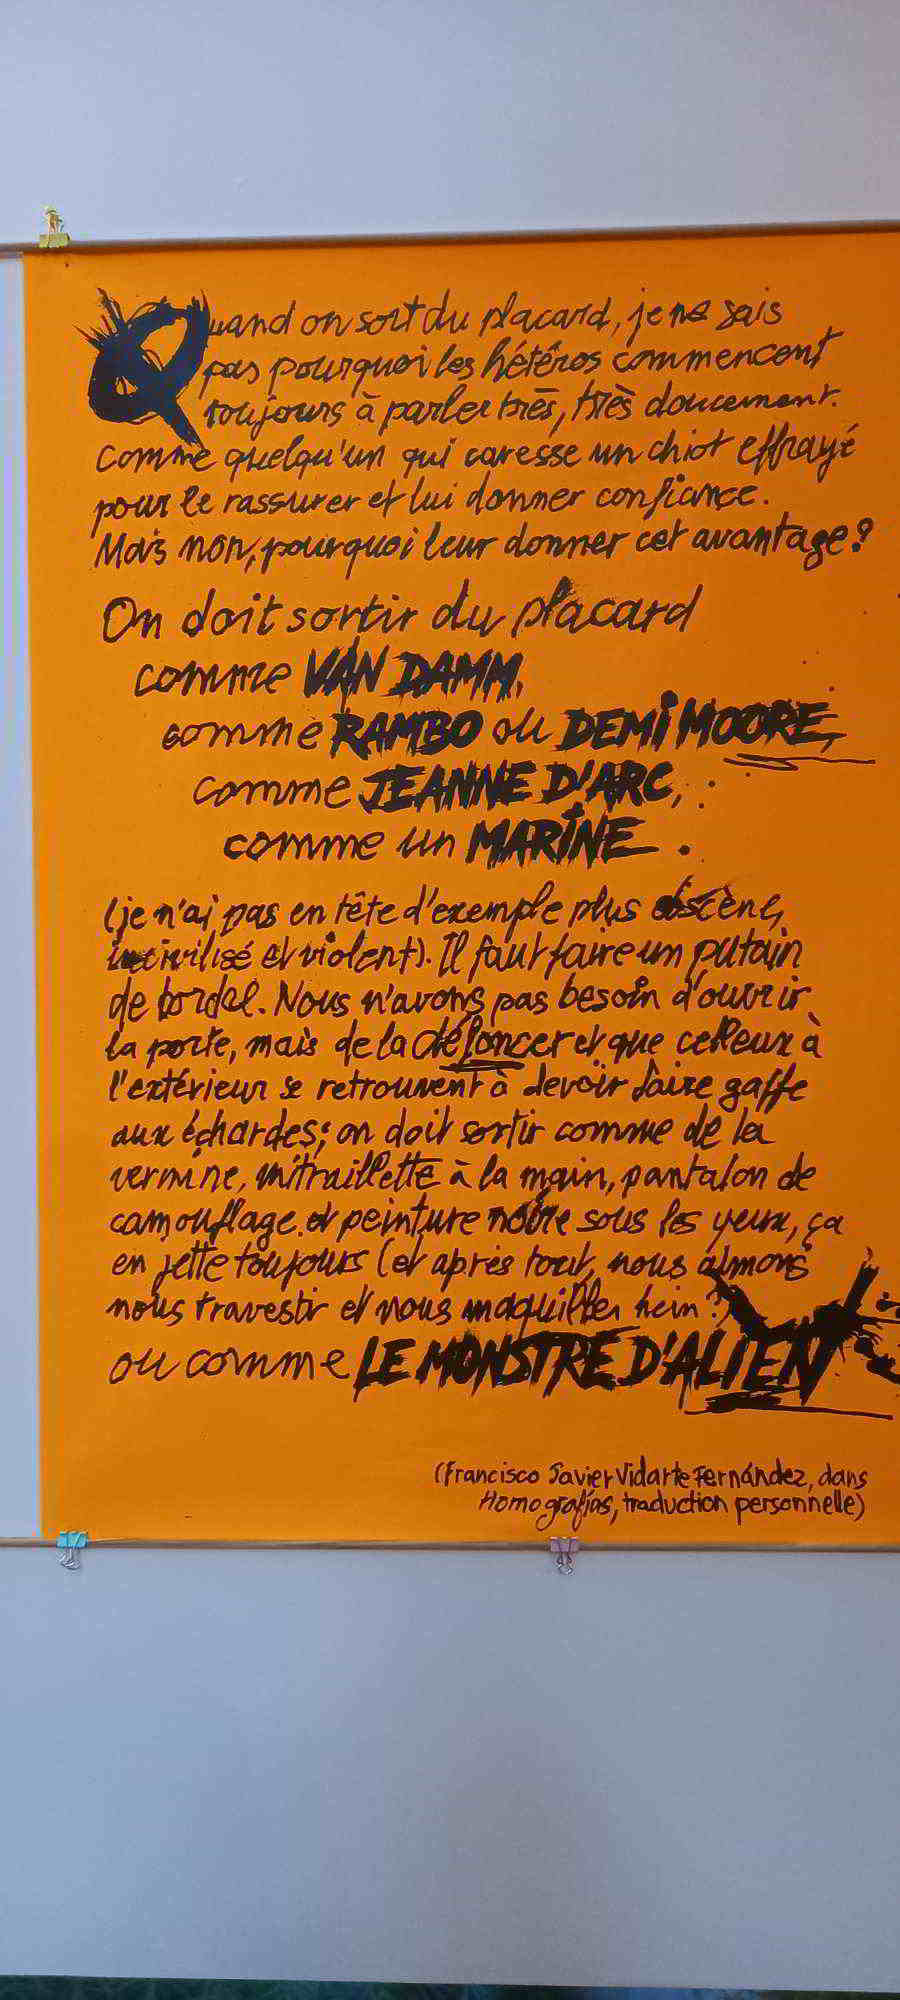 Quand on sort du placard, je ne sais
pas pourquoi les hétéros commencent
toujours à parler très, très doucement.
Comme quelqu'un qui caresse un chiot effrayé
pour le rassurer et lui donner confiance.
Mais non, pourquoi leur donner cet avantage?
On doit sortir du placard
comme VAN DAMM,
comme RAMBO ou DEMI MOORE,
comme JEANNE D'ARC,
comme un MARINE.
(je n'ai pas en tête d'exemple plus obscène,
incivilisé et violent). Il faut faire un putain
de bordel. Nous n'avons pas besoin d'ouvrir
la porte, mais de la défoncer et que celleux à
l'extérieur se retrouvent à devoir faire gaffe
aux échardes; on doit sortir comme de la
vermine, mitraillette à la main, pantalon de
camouflage et peinture noire sous les yeux, ça
en jette toujours (et après tout, nous aimons
nous travestir et nous maquiller hein?)
ou comme LE MONSTRE D'ALIEN
(Francisco Javier Vidarte Fernández, dans
Homografías, traduction personnelle)